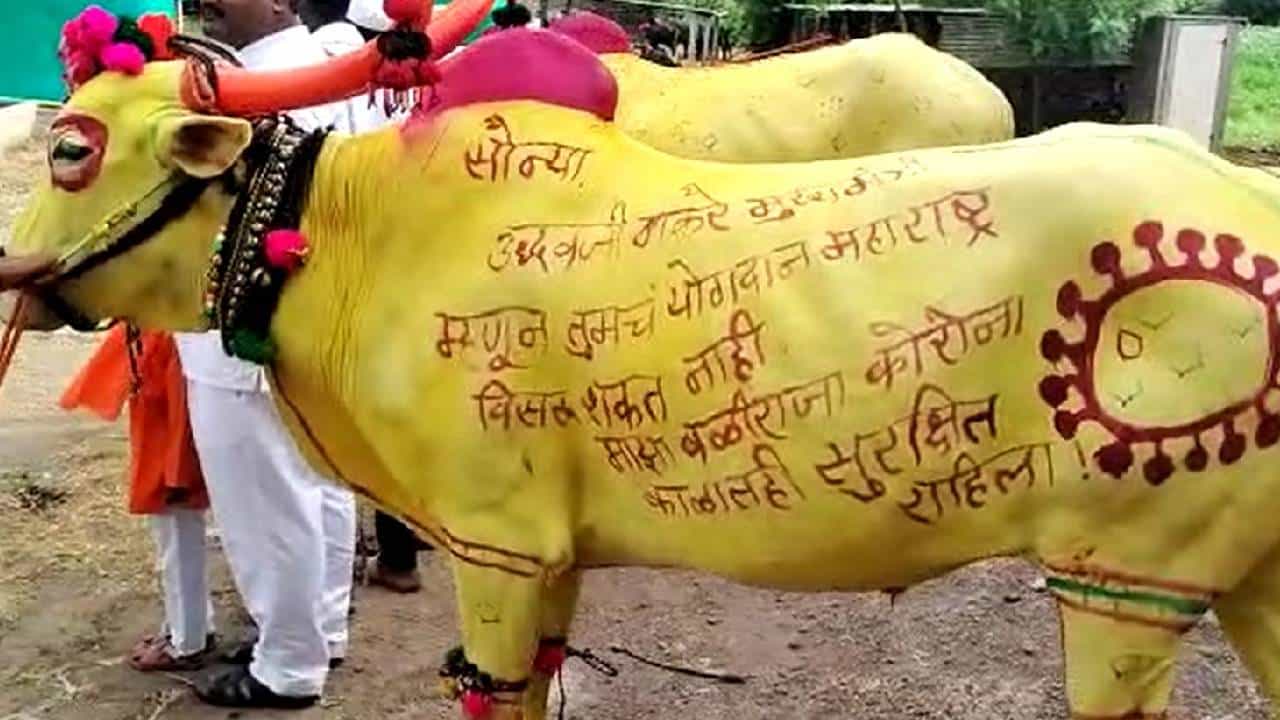 सौन्या
उध्दवजी ठाकरे मुख्यमंत्री
म्हणून तुमचं योगदान महाराष्ट्र
विसरु शकत नाही
माझा बळीराजा कोरोना
काळातही सुरक्षित
राहिला !